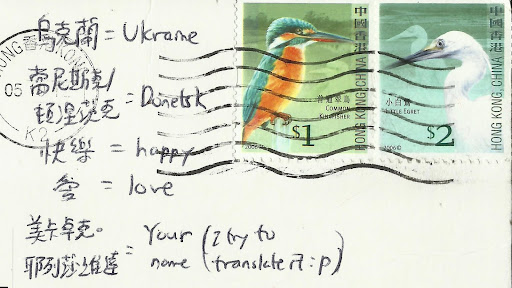 烏克蘭 = Ukraine
當尼斯克/
頓涅茨克 = Donetsk
快樂 = happy
愛 = love
美卡卓克。
耶列莎維達 = Your name (I try to translate it :p)
中國香港
HONG KONG, CHINA
普通翠鳥
COMMON
KINGFISHER
$1
2006©
中國香港
HONG KONG, CHINA
小白鷺
LITTLE EGRET
$2
2006©
HONG KONG
05